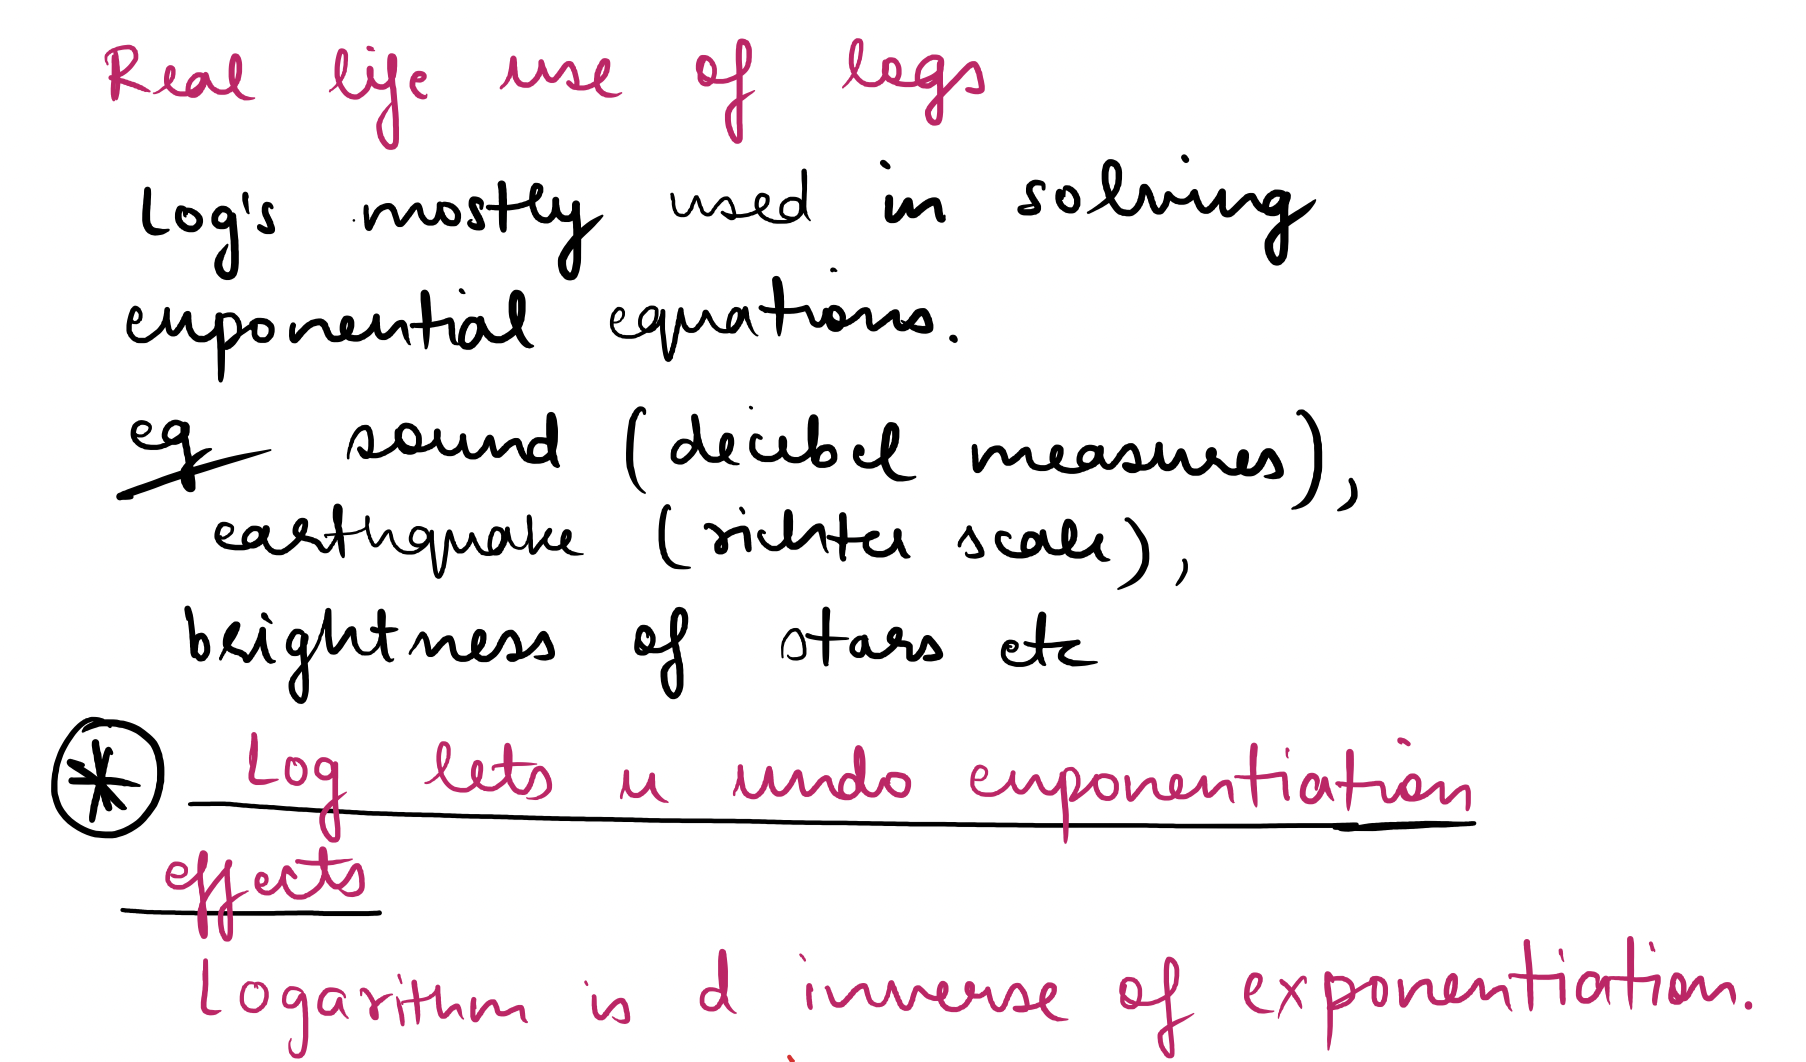 Real life use of logs
Log's mostly used in solving
exponential equations.
eg sound (decibel measures),
earthquake (richter scale),
brightness of stars etc
* Log lets u undo exponentiation
effects
Logarithm is d inverse of exponentiation.